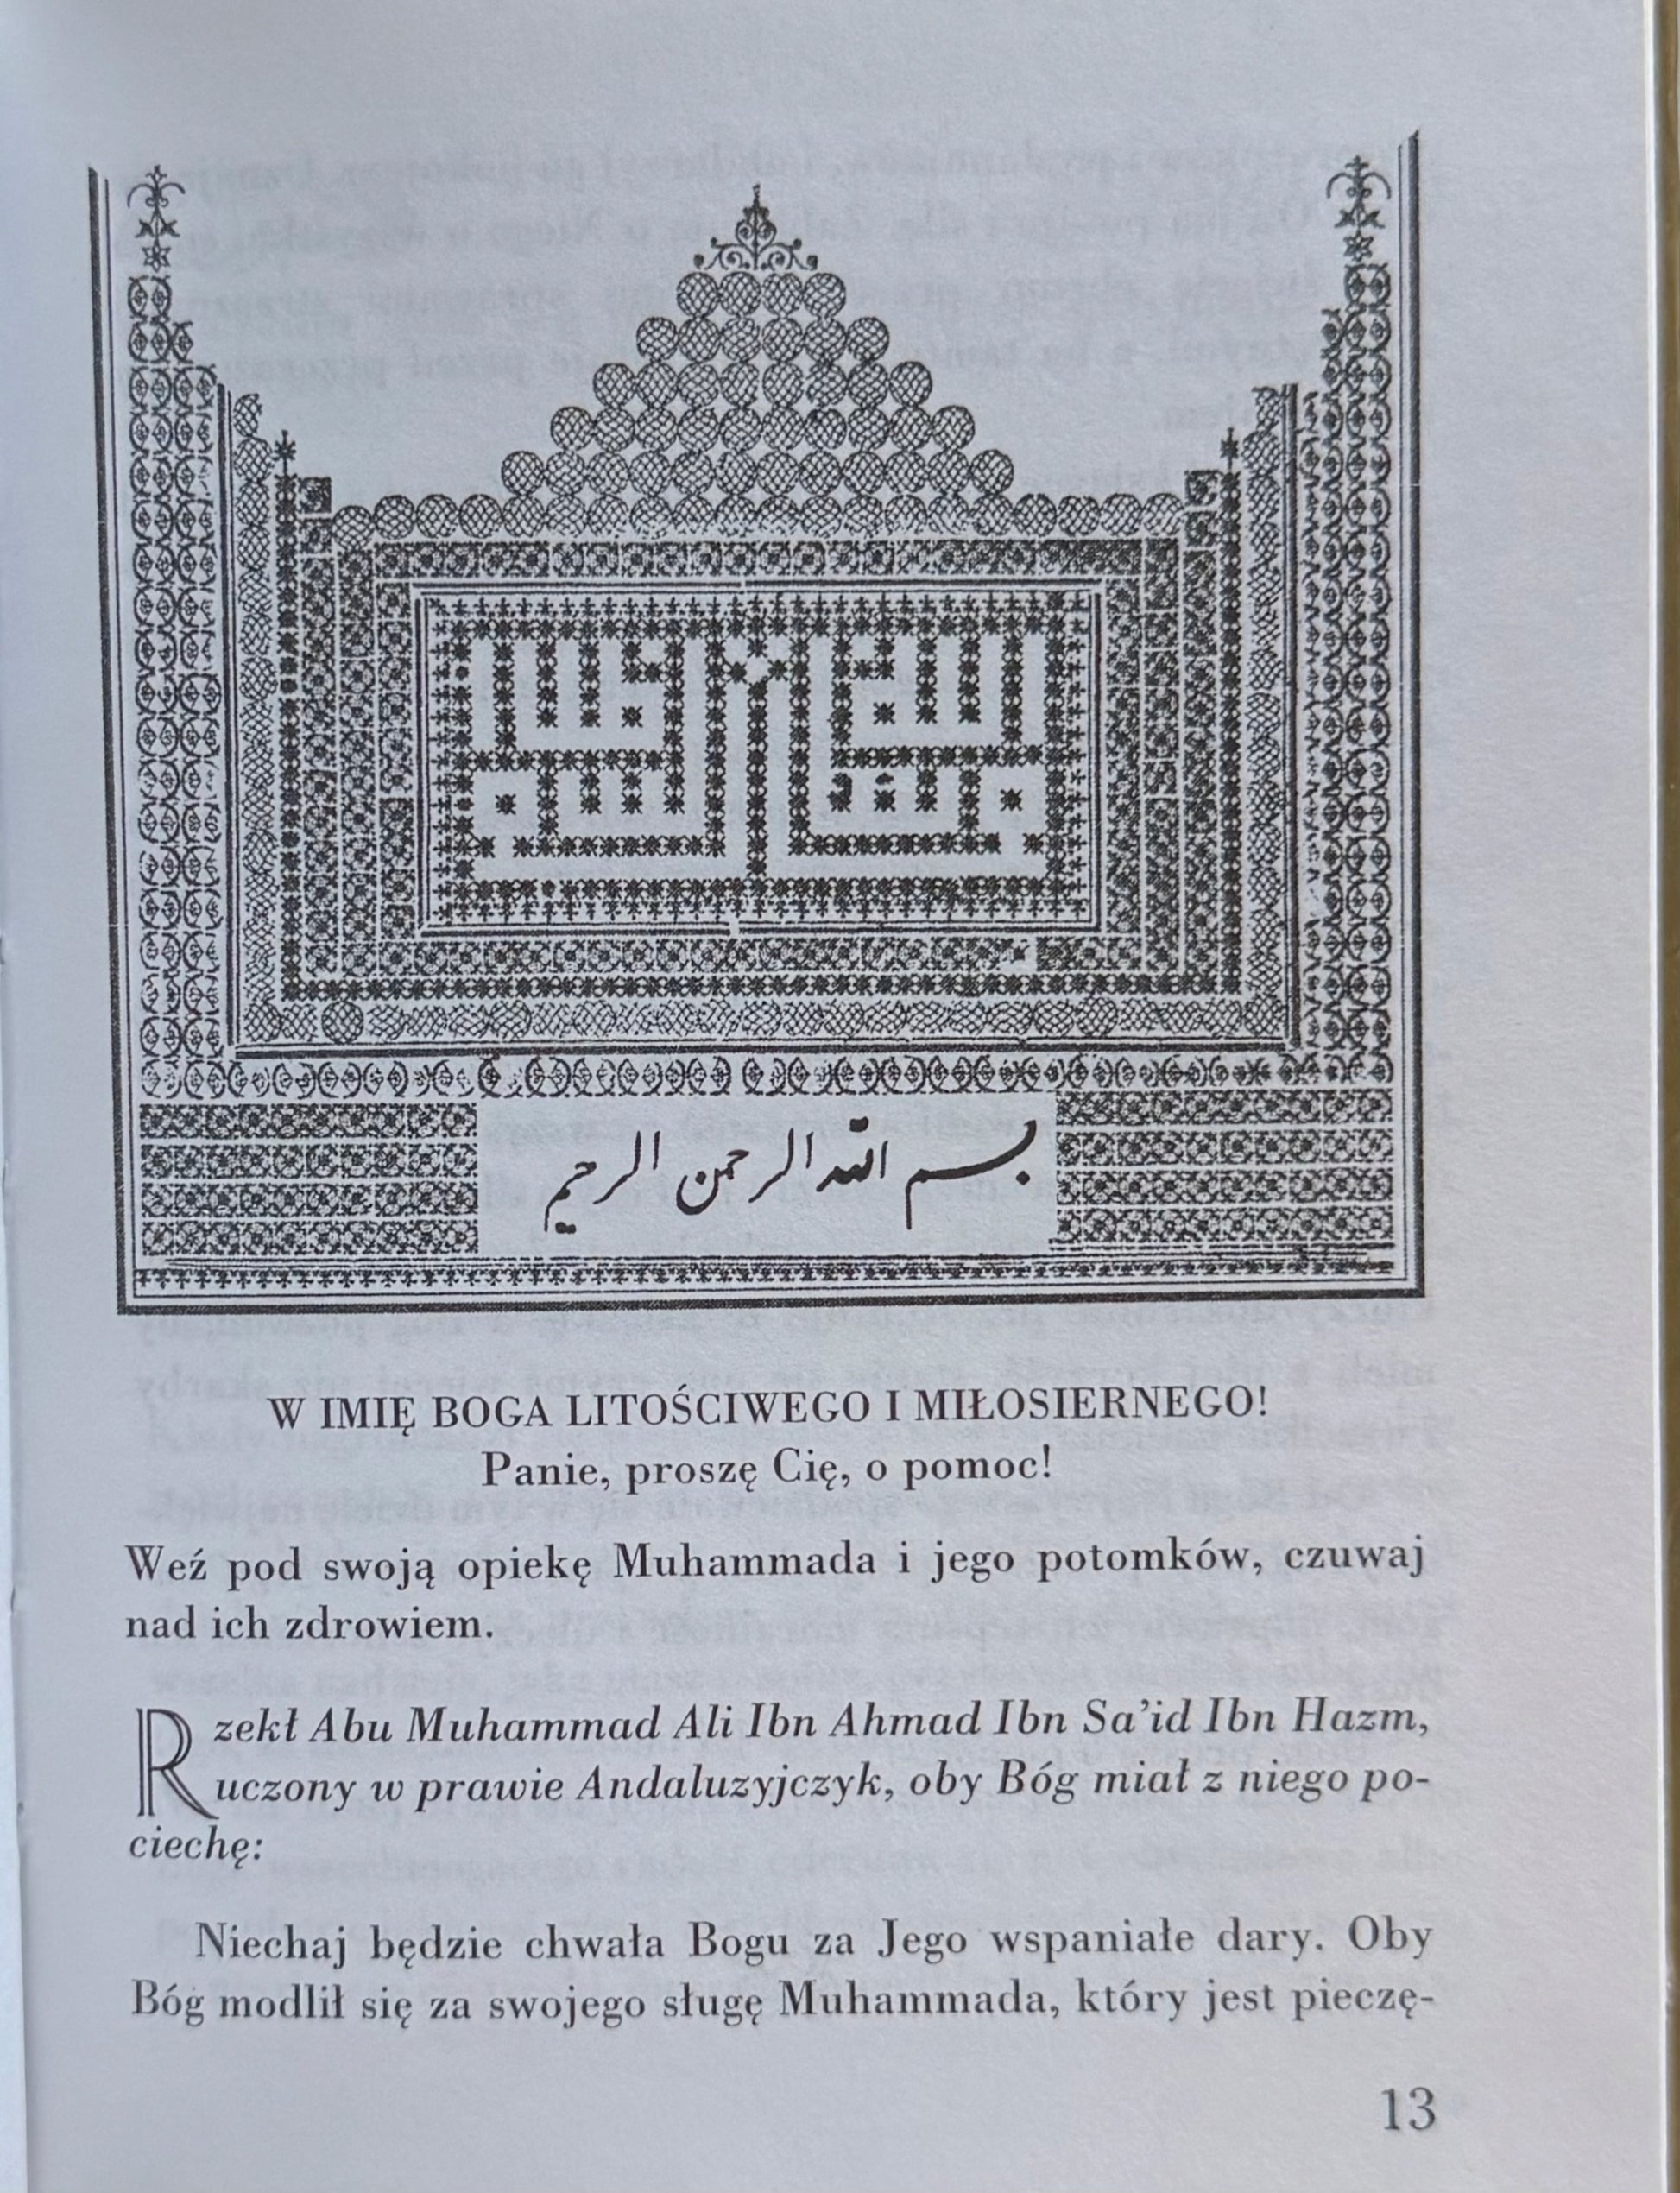 بسم الله الرحمن الرحيم
W IMIĘ BOGA LITOŚCIWEGO I MIŁOSIERNEGO!
Panie, proszę Cię, o pomoc!
Weź pod swoją opiekę Muhammada i jego potomków, czuwaj
nad ich zdrowiem.
Rzekł Abu Muhammad Ali Ibn Ahmad Ibn Sa’id Ibn Hazm,
uczony w prawie Andaluzyjczyk, oby Bóg miał z niego po-
ciechę:
Niechaj będzie chwała Bogu za Jego wspaniałe dary. Oby
Bóg modlił się za swojego sługę Muhammada, który jest pieczę-
13